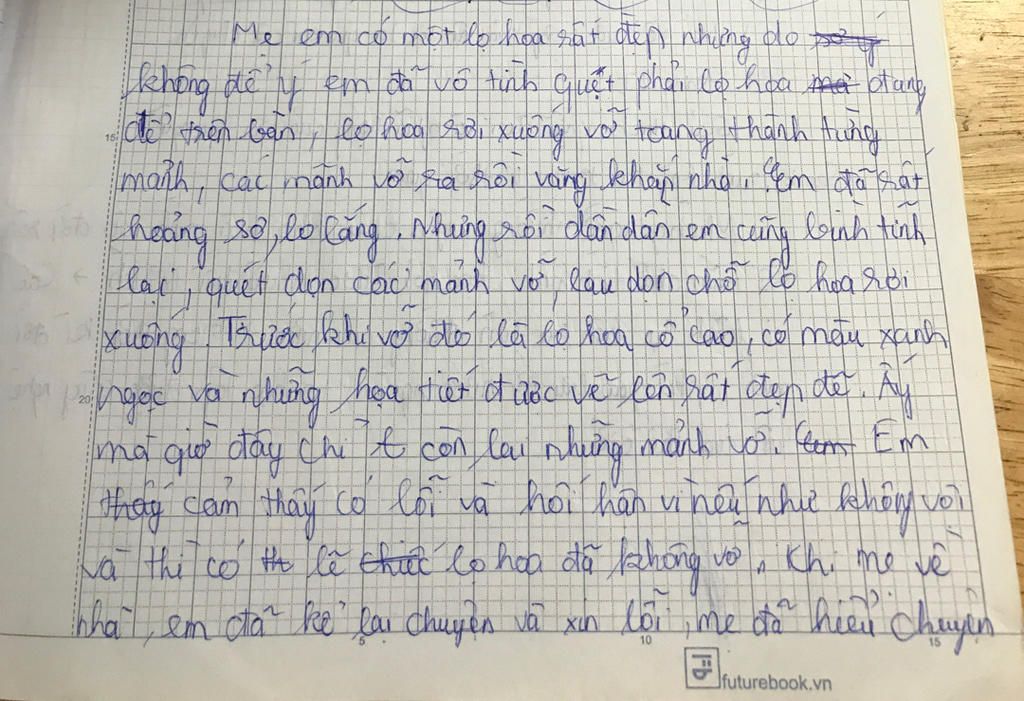 Mẹ em có một lọ hoa rất đẹp nhưng do
không để ý em đã vô tình quệt phải lọ hoa mà đang
15 để trên bàn, lọ hoa rơi xuống vỡ toang thành từng
mảnh, các mảnh vỡ ra rồi văng khắp nhà. Em đã rất
hoảng sợ, lo lắng. Nhưng rồi dần dần em cũng bình tĩnh
lại, quét dọn các mảnh vỡ, lau dọn chỗ lọ hoa rơi
xuống. Trước khi vỡ đó là lọ hoa cổ cao, có màu xanh
20 ngọc và những họa tiết được vẽ lên rất đẹp đẽ. Ấy
mà giờ đây chỉ t còn lại những mảnh vỡ. Em Em
thấy cảm thấy có lỗi và hối hận vì nếu như không vội
và thì có th lẽ chiếc lọ hoa đã không vỡ. Khi mẹ về
nhà, em đã kể lại chuyện và xin lỗi, mẹ đã hiểu chuyện
5 10 15
futurebook.vn